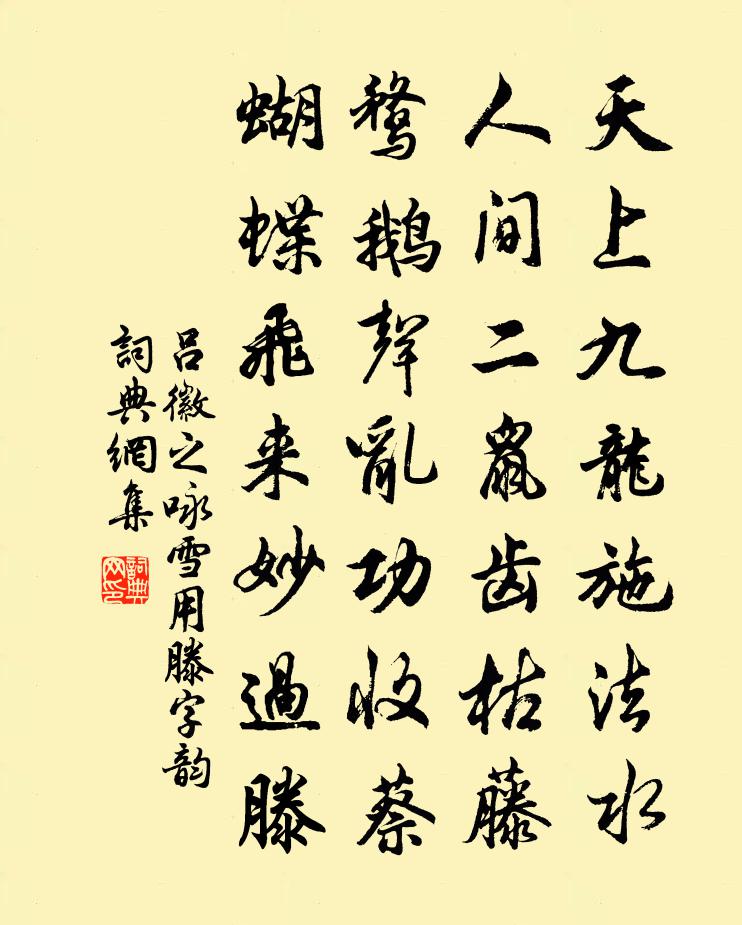 天上九龍施法水
人间二鼠齿枯藤
鹜鹅聲亂功收蔡
蝴蝶飛来妙過滕
吕徽之咏雪用滕字韵
詞典網集
詞典网印